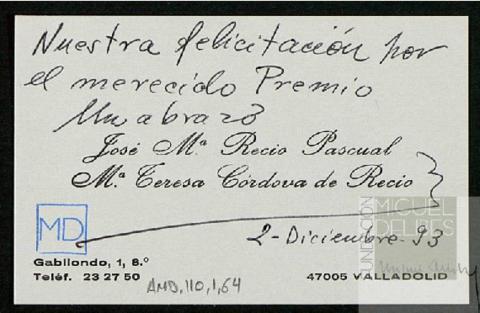 Nuestra felicitación por
el merecido Premio
Un abrazo
José Mª Recio Pascual
Mª Teresa Córdova de Recio
MD
2-Diciembre-93
Gabilondo, 1, 8.º
Teléf. 23 27 50
AMD,110,1,64
47005 VALLADOLID
FUNDACIÓN
MIGUEL
DELIBES